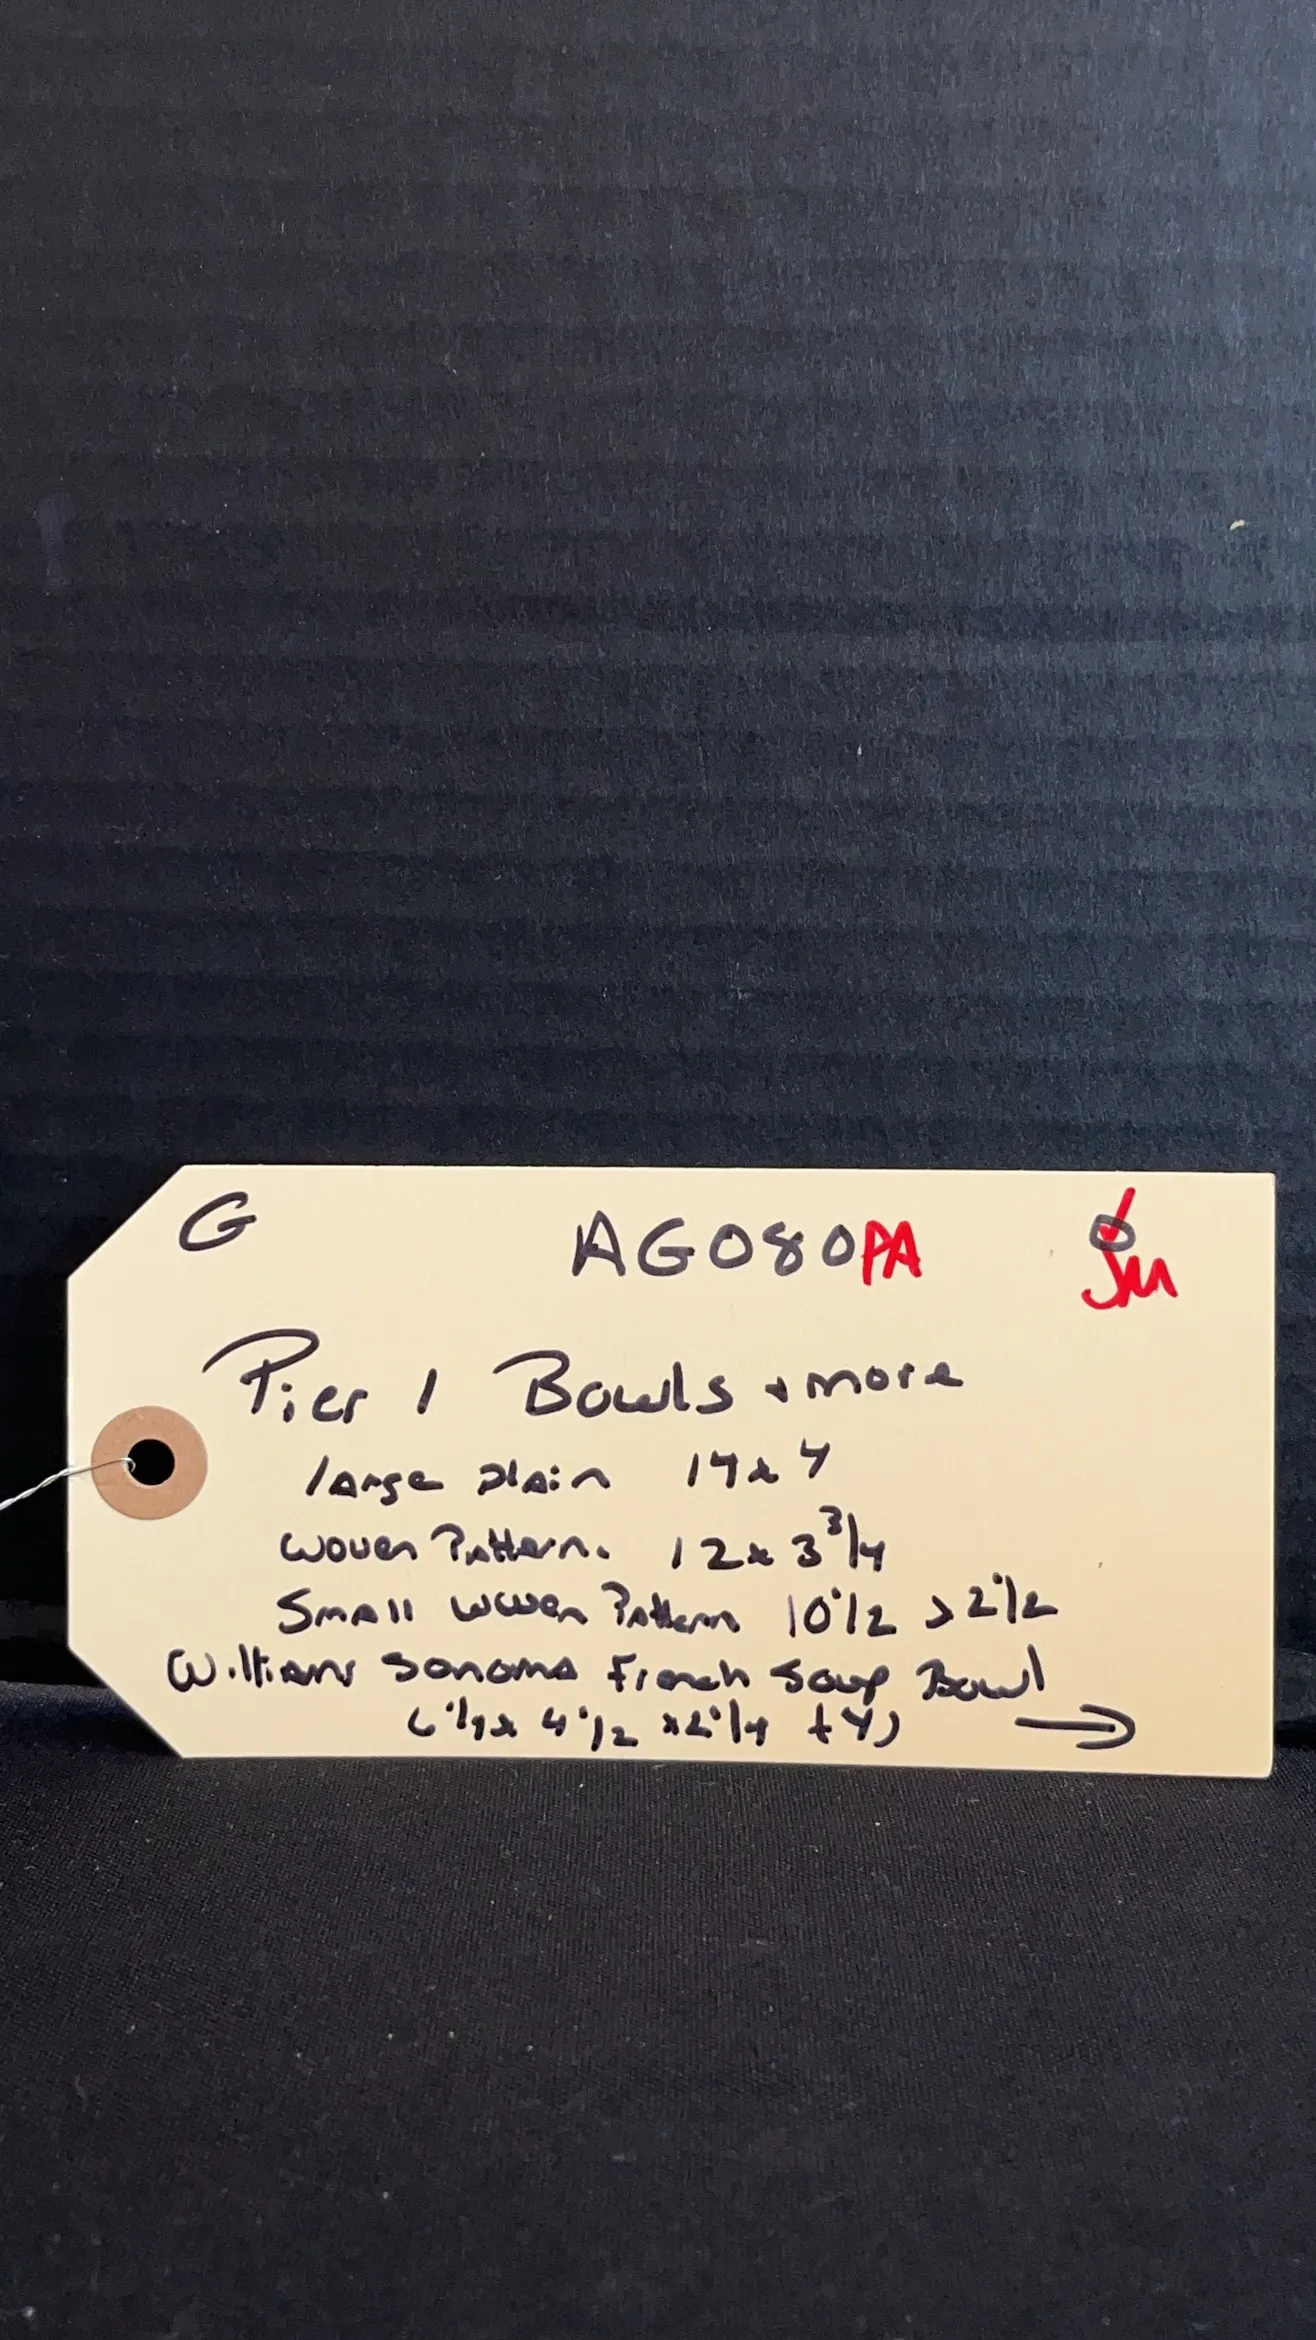 G AG080PA JM
Pier 1 Bowls + more
large plain 14 x 4
woven Pattern. 12 x 3 3/4
Small woven Pattern 10 1/2 x 2 1/2
Williams Sonoma French Soup Bowl
4 1/2 x 2 1/4 →